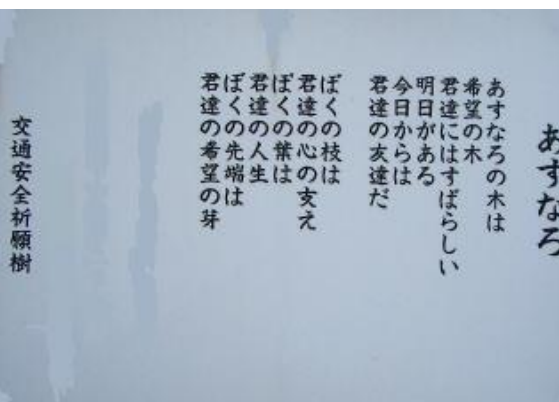 あすなろ
あすなろの木は
希望の木
君達にはすばらしい
明日がある
今日からは
君達の友達だ
ぼくの枝は
君達の心の支え
ぼくの葉は
君達の人生
ぼくの先端は
君達の希望の芽
交通安全祈願樹